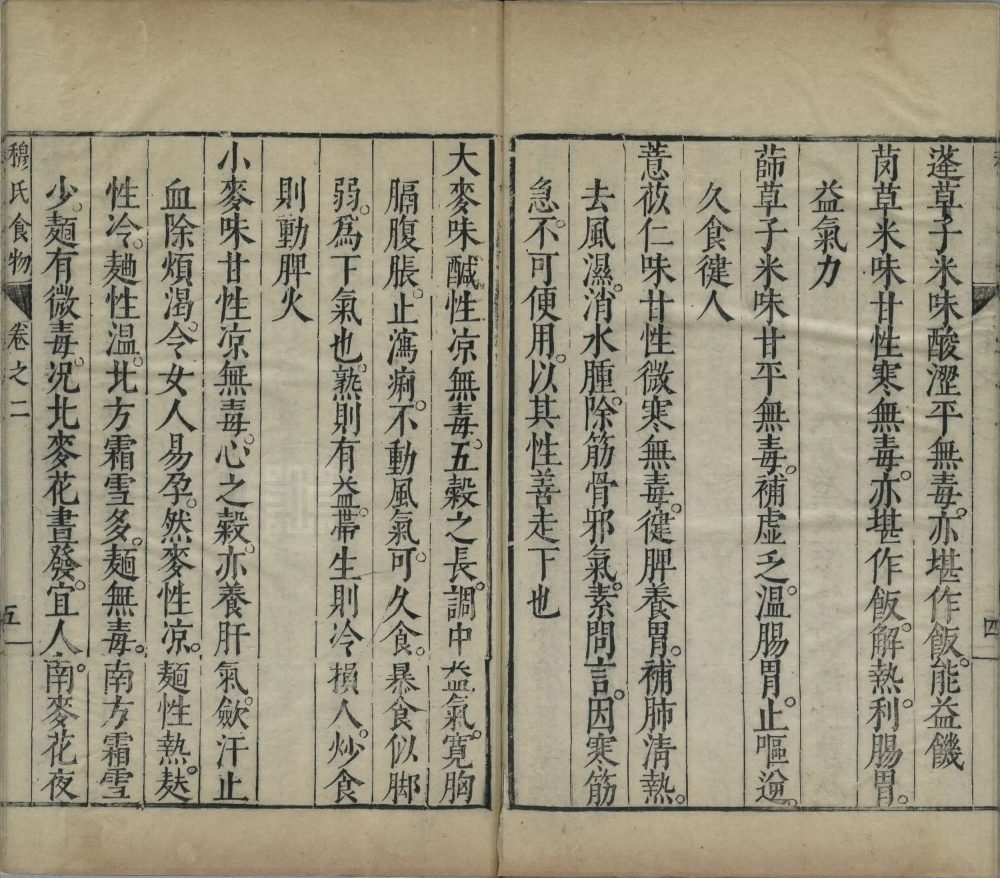 蓬草子米味酸澀平無毒。亦堪作飯。能益饑
茵草米味甘性寒無毒。亦堪作飯。解熱利腸胃。
益氣力
蒒草子米味甘平無毒。補虛乏。溫腸胃。止嘔逆。
久食健人
薏苡仁味甘性微寒無毒。健脾養胃。補肺清熱。
去風濕。消水腫。除筋骨邪氣。素問言。因寒筋
急。不可便用。以其性善走下也
四
大麥味鹹性凉無毒。五穀之長。調中益氣。寬胸
膈腹脹。止瀉痢。不動風氣。可久食。暴食似脚
弱。爲下氣也。熟則有益。帶生則冷損人。炒食
則動脾火
小麥味甘性凉無毒。心之穀。亦養肝氣。歛汗止
血除煩渴。令女人易孕。然麥性凉。麵性熱。麩
性冷。麯性溫。北方霜雪多。麵無毒。南方霜雪
少。麵有微毒。况北麥花晝發。宜人。南麥花夜
穆氏食物 卷之二 五